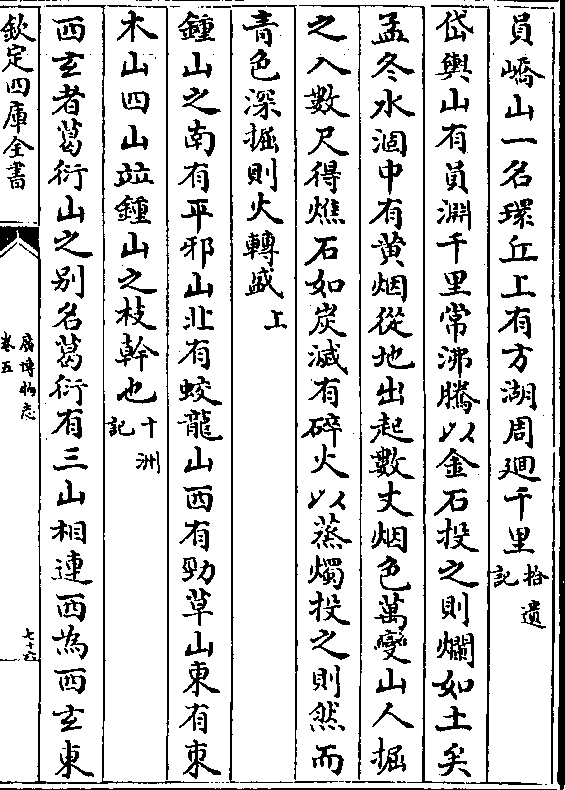 員嶠山一名環丘上有方湖周廻千里拾遺記
岱輿山有員淵千里常沸騰以金石投之則爛如土矣
孟冬水涸中有黄烟從地出起數丈烟色萬變山人掘
之入數尺得燋石如炭滅有碎火以蒸燭投之則然而
青色深掘則火轉盛上
鍾山之南有平邪山北有蛟龍山西有勁草山東有束
木山四山竝鍾山之枝幹也十洲記
西玄者葛衍山之别名葛衍有三山相連西為西玄東
欽定四庫全書
廣博物志
卷五
七十六